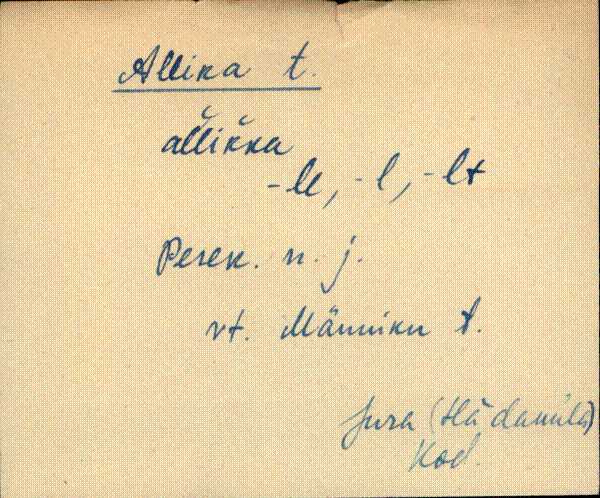 Allika t.
ălĭikka
-le, -l, -lt
Perek. n. j.
vt. Männiku t.
Jura (Hädanüla)
Kod.